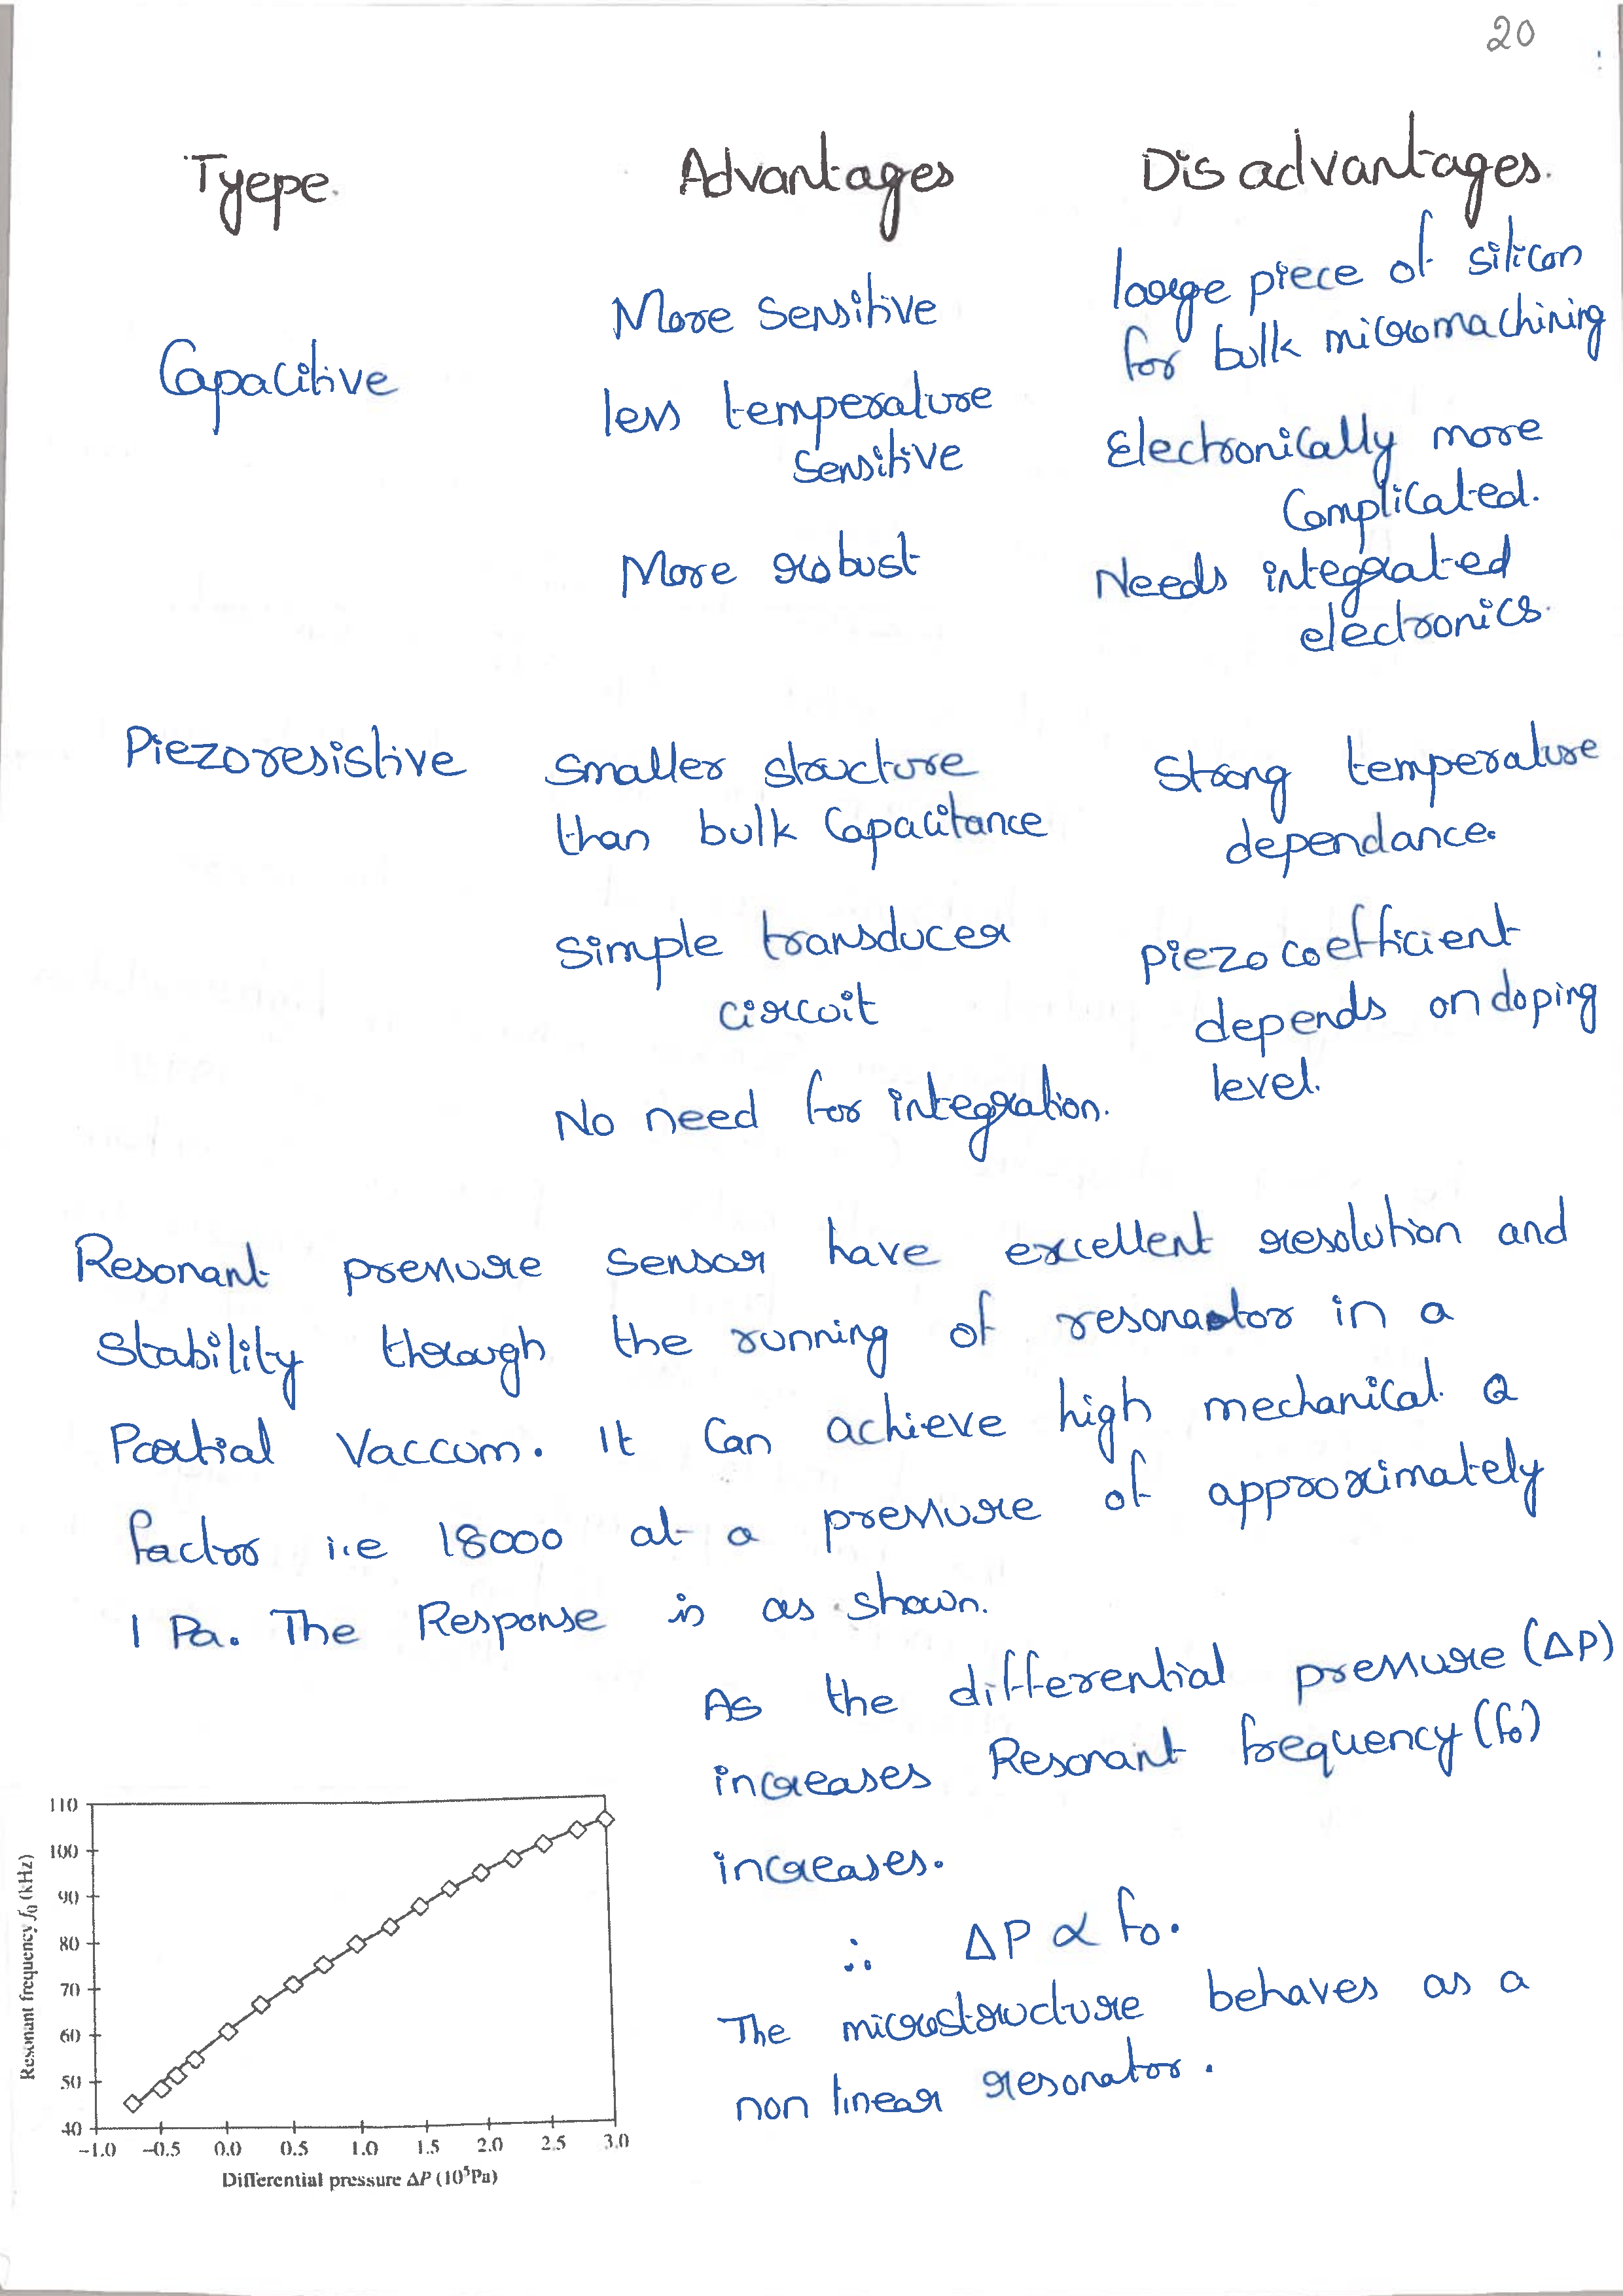 20
Tyepe. Advantages Disadvantages.
Capacitive
More Sensitive
less temperature
Sensitive
More robust
large piece of silicon
for bulk micromachining
Electronically more
Complicated.
Needs integrated
electronics.
Piezoresistive
Smaller structure
than bulk Capacitance
Simple transducer
circuit
No need for integration.
Strong temperature
dependance.
piezo coefficient
depends on doping
level.
Resonant pressure sensor have excellent resolution and
Stability through the running of resonator in a
Partial Vaccum. It Can achieve high mechanical Q
factor i.e 18000 at a pressure of approximately
1 Pa. The Response is as shown.
As the differential pressure (ΔP)
increases Resonant frequency (fo)
increases.
∴ ΔP ∝ fo.
The microstructure behaves as a
non linear resonator.
110
100
90
80
70
60
50
40
Resonant frequency f0 (kHz)
−1.0 −0.5 0.0 0.5 1.0 1.5 2.0 2.5 3.0
Differential pressure ΔP (10^5Pa)